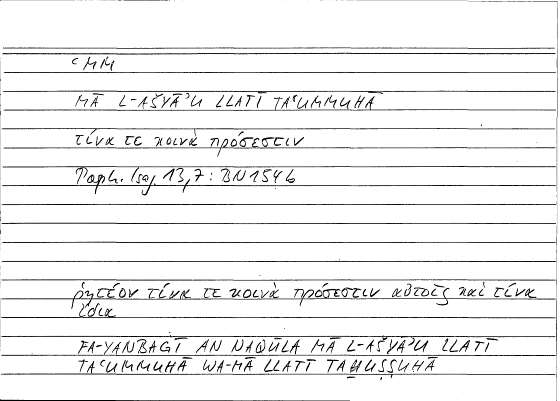 ʿMM
MĀ L-AŠYĀʾU LLATĪ TAʿUMMUHĀ
τίνα τε κοινὰ πρόσεστιν
Porph. Isag. 13,7 : BN 154b
ῥητέον τίνα τε κοινὰ πρόσεστιν αὐτοῖς καὶ τίνα
ἴδια
FA-YANBAĠĪ AN NAQŪLA MĀ L-AŠYĀʾU LLATĪ
TAʿUMMUHĀ WA-MĀ LLATĪ TAḪUṢṢUHĀ